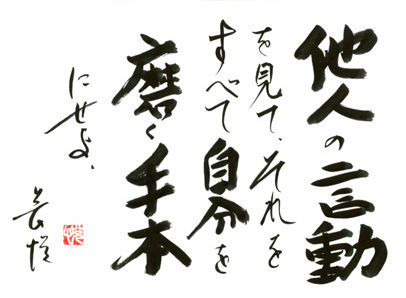 他人の言動
を見て、それを
すべて自分を
磨く手本
にせよ、